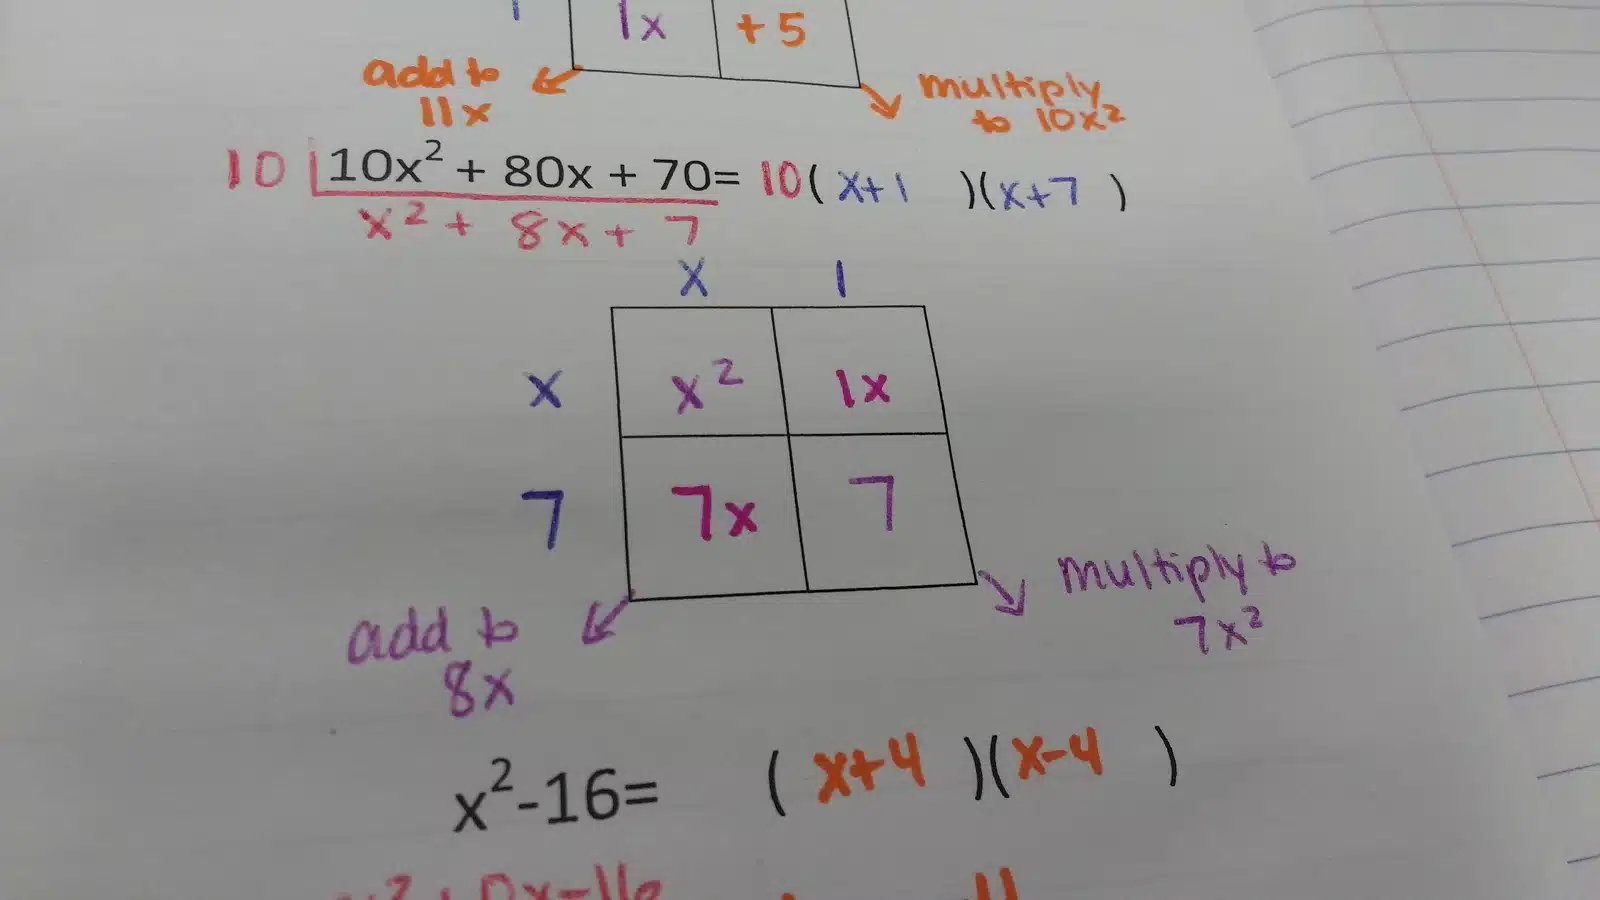 1x +5
add to
11x
multiply
to 10x²
10 10x² + 80x + 70= 10(x+1 )(x+7 )
x² + 8x + 7
x 1
x x² 1x
7 7x 7
add to
8x
multiply to
7x²
x²-16= (x+4 )(x-4 )